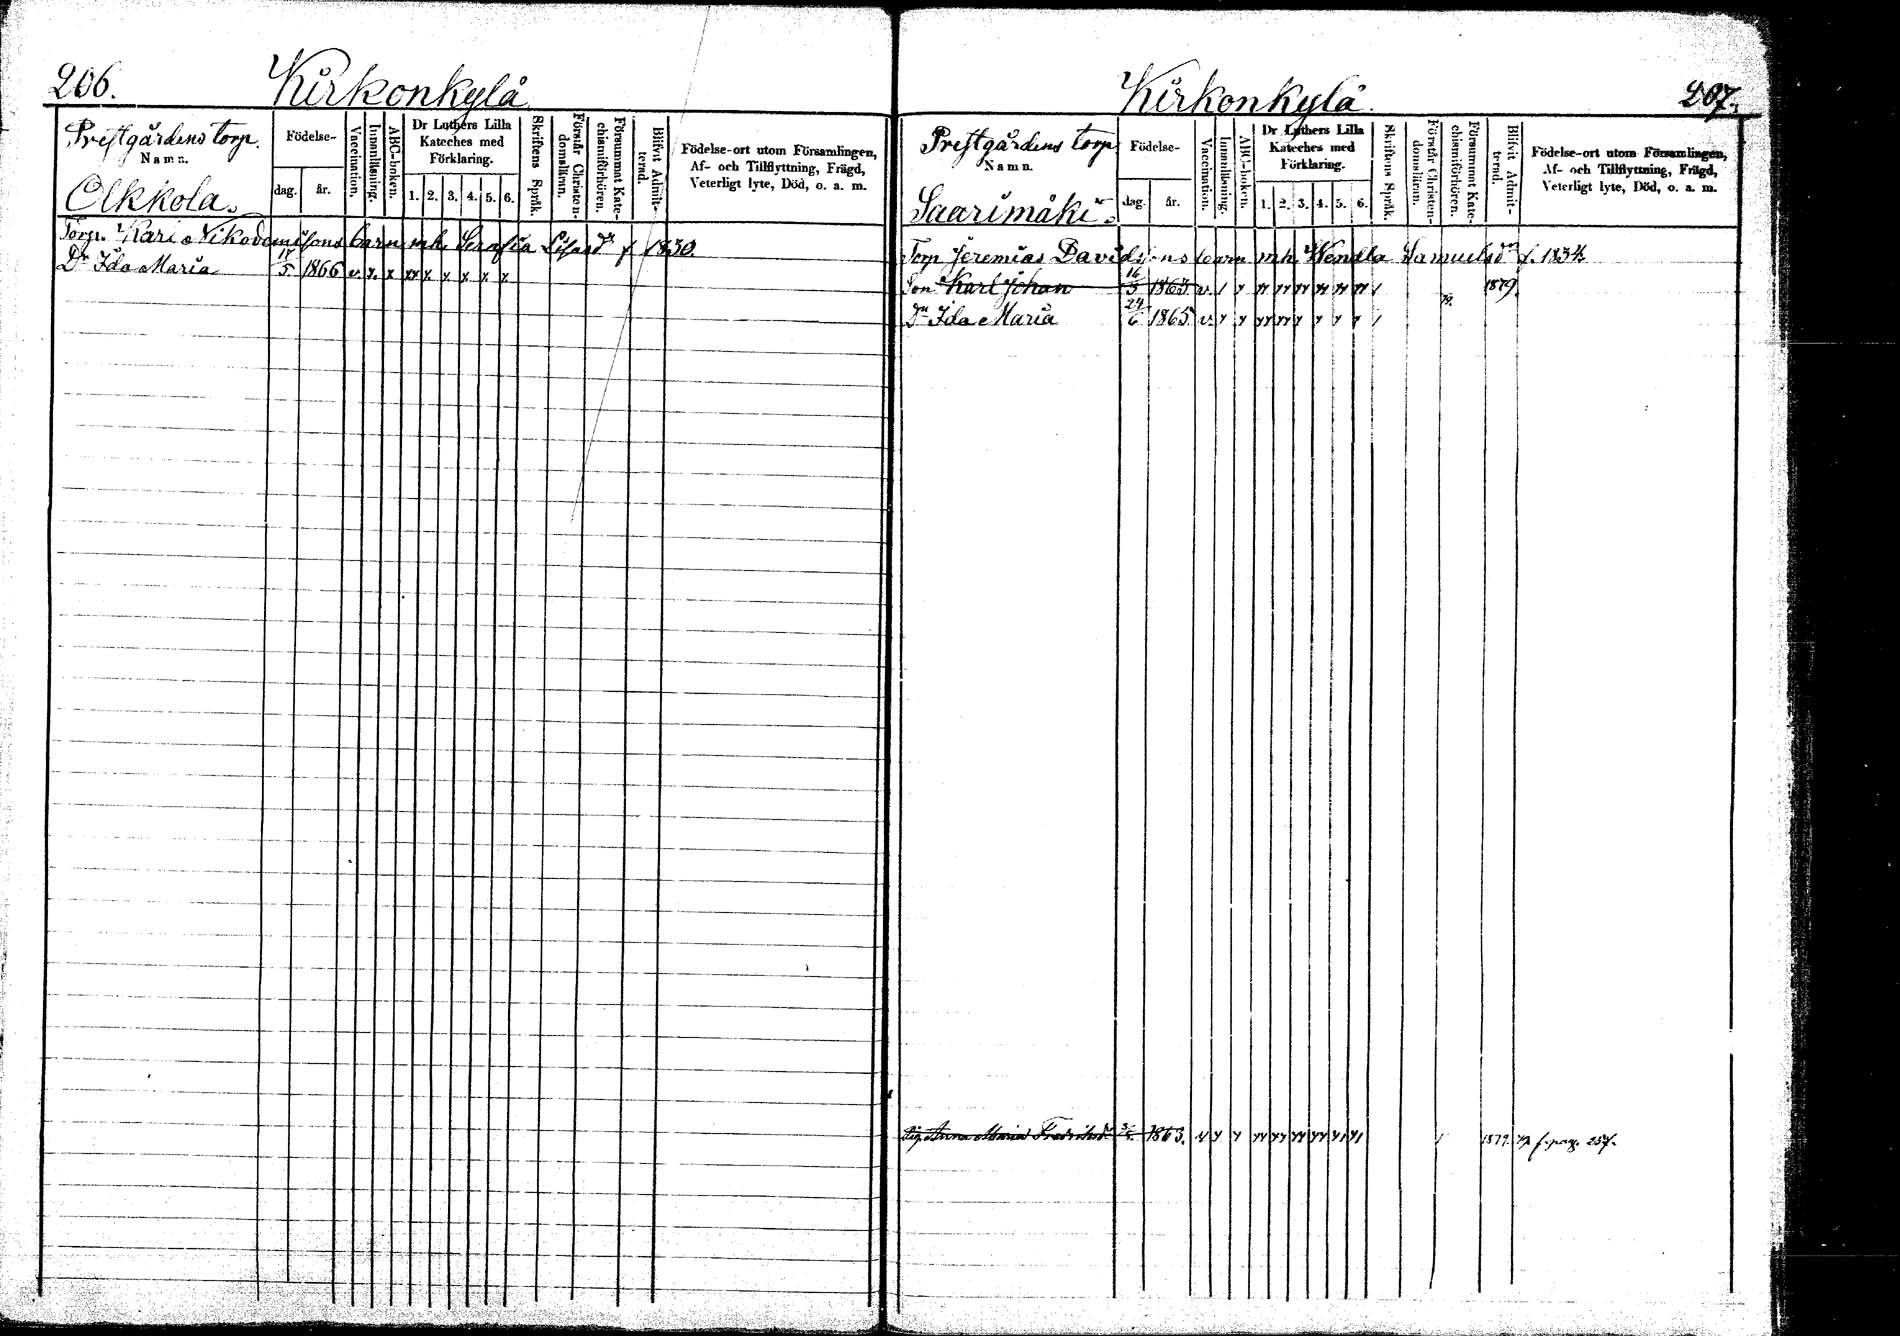 206.
Kirkonkylä
Prestgårdens torp.
Namn.
Olkkola.
Födelse-
dag.
år.
Vaccination.
Innanläsning.
ABC-boken.
Dr Luthers Lilla
Kateches med
Förklaring.
1. 2. 3. 4. 5. 6.
Skriftens Språk.
Förstår Christen-
domsläran.
Försummat Kate-
chismiförhören.
Blifvit Admit-
terad.
Födelse-ort utom Församlingen,
Af- och Tillflyttning, Frägd,
Veterligt lyte, Död, o. a. m.
Torp. Karl Nikodemisons barn mh. Serafia Lisasdr f 1830.
Dr Ida Maria 5 1866 v. x. x xx x x x x x
Kirkonkylä.
207.
Prestgårdens torp
Namn.
Saarimäki.
Födelse-
dag.
år.
Vaccination.
Innanläsning.
ABC-boken.
Dr Luthers Lilla
Kateches med
Förklaring.
1. 2. 3. 4. 5. 6.
Skriftens Språk.
Förstår Christen-
domsläran.
Försummat Kate-
chismiförhören.
Blifvit Admit-
terad.
Födelse-ort utom Församlingen,
Af- och Tillflyttning, Frägd,
Veterligt lyte, Död, o. a. m.
Torp Jeremias Davidsons barn mh. Wendla Samuelsdr f. 1834
Son Karl Johan 16/5 1863 v. 1879.
Dr Ida Maria 24/6 1865 v.
Pig. Anna Maria Fredriksdr 1863. 1879. f. pag. 257.